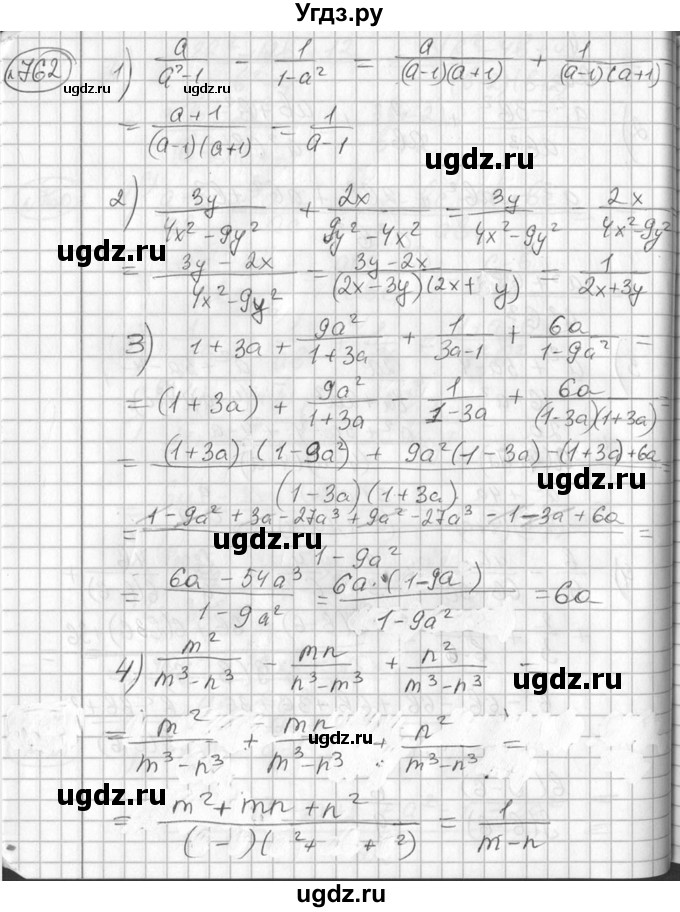 Угдз.ру
№762 1) a/(a²-1) - 1/(1-a²) = a/((a-1)(a+1)) + 1/((a-1)(a+1))
ugdz.ru
ugdz.ru
= (a+1)/((a-1)(a+1)) = 1/(a-1)
ugdz.ru
2) 3y/(4x²-9y²) + 2x/(9y²-4x²) = 3y/(4x²-9y²) - 2x/(4x²-9y²)
ugdz.ru
ugdz.ru
= (3y-2x)/(4x²-9y²) = (3y-2x)/((2x-3y)(2x+ y)) = 1/(2x+3y)
ugdz.ru
3) 1+3a + 9a²/(1+3a) + 1/(3a-1) + 6a/(1-9a²) =
= (1+3a) + 9a²/(1+3a) - 1/(1-3a) + 6a/((1-3a)(1+3a)) =
ugdz.ru
= ((1+3a)(1-9a²) + 9a²(1-3a) - (1+3a) + 6a)/((1-3a)(1+3a)) =
ugdz.ru
= (1-9a²+3a-27a³+9a²-27a³-1-3a+6a)/(1-9a²) =
ugdz.ru
= (6a-54a³)/(1-9a²) = (6a·(1-9a))/(1-9a²) = 6a
4) m²/(m³-n³) - mn/(n³-m³) + n²/(m³-n³) =
ugdz.ru
= m²/(m³-n³) + mn/(m³-n³) + n²/(m³-n³) =
ugdz.ru
ugdz.ru
= (m²+mn+n²)/(( - )( ²+ + ²)) = 1/(m-n)
ugdz.ru
ugdz.ru
ugdz.ru